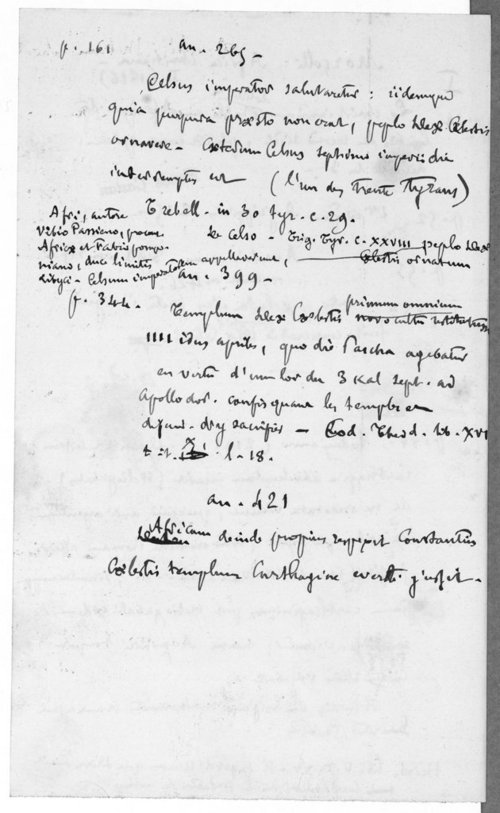 p. 161
an. 265 -
Celsus imperator salutaretur : iidemque
quia purpura præsto non erat, peplo deæ Cœlestis
ornavere - Celsus septimo imperii die
interemptus est (l'un des trente tyrans)
Trebell. in 30 tyr. c. 29.
de Celso - trig. tyr. c. XXVIII peplo deæ
Cœlestis ornatum
Afri, autore
Vibio Passieno, procons.
Africæ et Fabio pompo-
niano, duce limitis
Libyci - Celsum imperatorem appellaverunt,
an. 399 -
p. 344.
primum omnium
Templum deæ Cœlestis novo cultu
IIII idus aprilis, quo die Pascha agebatur
en vertu d'une loi du 3 kal sept. ad
Apollodor. confisquant les temples et
défend. des sacrifices - Cod. Theod. lib. XVI
tit. l. 18.
an. 421
Africam deinde propius respexit Constantius
Cœlestis templum Carthagine everti jussit -